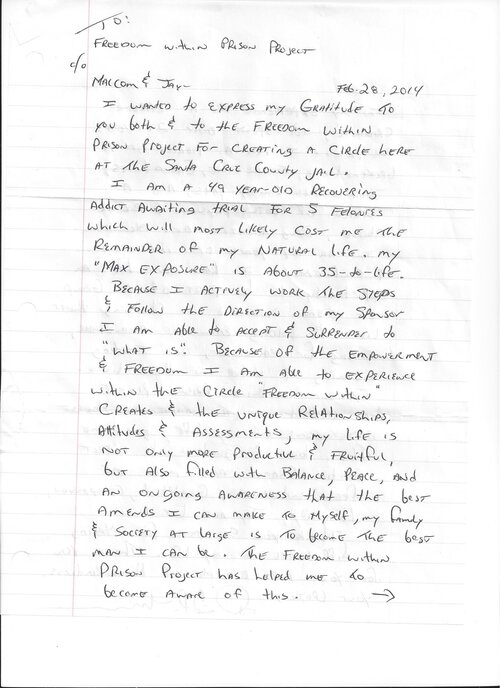 TO:
FREEDOM within PRISON PROJECT
c/o
MALCOM & JAY- Feb. 28, 2014
I WANTED to EXPRESS my GRATITUDE to
you both & to the FREEDOM WITHIN
PRISON PROJECT FOR CREATING A CIRCLE HERE
AT THE SANTA CRUZ COUNTY JAIL.
I AM A 49 YEAR-OLD RECOVERING
ADDICT AWAITING TRIAL FOR 5 FELONIES
which will most likely cost me the
REMAINDER OF my NATURAL life. my
"MAX EXPOSURE" is About 35-to-life.
BECAUSE I ACTIVELY WORK THE STEPS
& Follow the DIRECTION OF my SPONSOR
I AM Able to ACCEPT & SURRENDER to
"WHAT is". BECAUSE OF the EMPOWERMENT
& FREEDOM I AM Able to EXPERIENCE
within the CIRCLE "FREEDOM within"
CREATES & the UNIQUE RELATIONSHIPS,
Attitudes & ASSESSMENTS, my life is
NOT ONLY MORE PRODUCTIVE & FRUITFUL,
but Also filled with BALANCE, PEACE, AND
AN ONGOING AWARENESS that the best
AMENDS I CAN MAKE to Myself, my family
& SOCIETY AT LARGE is to become THE best
MAN I CAN be. THE FREEDOM within
PRISON PROJECT HAS helped me to
become AWARE OF this. →